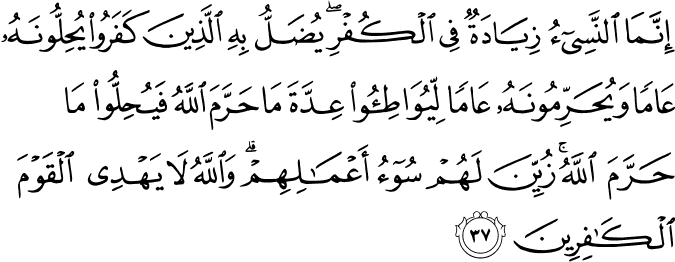 إِنَّمَا ٱلنَّسِىٓءُ زِيَادَةٌ فِى ٱلْكُفْرِ ۖ يُضَلُّ بِهِ ٱلَّذِينَ كَفَرُوا۟ يُحِلُّونَهُۥ
عَامًا وَيُحَرِّمُونَهُۥ عَامًا لِّيُوَاطِـُٔوا۟ عِدَّةَ مَا حَرَّمَ ٱللَّهُ فَيُحِلُّوا۟ مَا
حَرَّمَ ٱللَّهُ ۚ زُيِّنَ لَهُمْ سُوٓءُ أَعْمَـٰلِهِمْ ۗ وَٱللَّهُ لَا يَهْدِى ٱلْقَوْمَ
ٱلْكَـٰفِرِينَ ٣٧